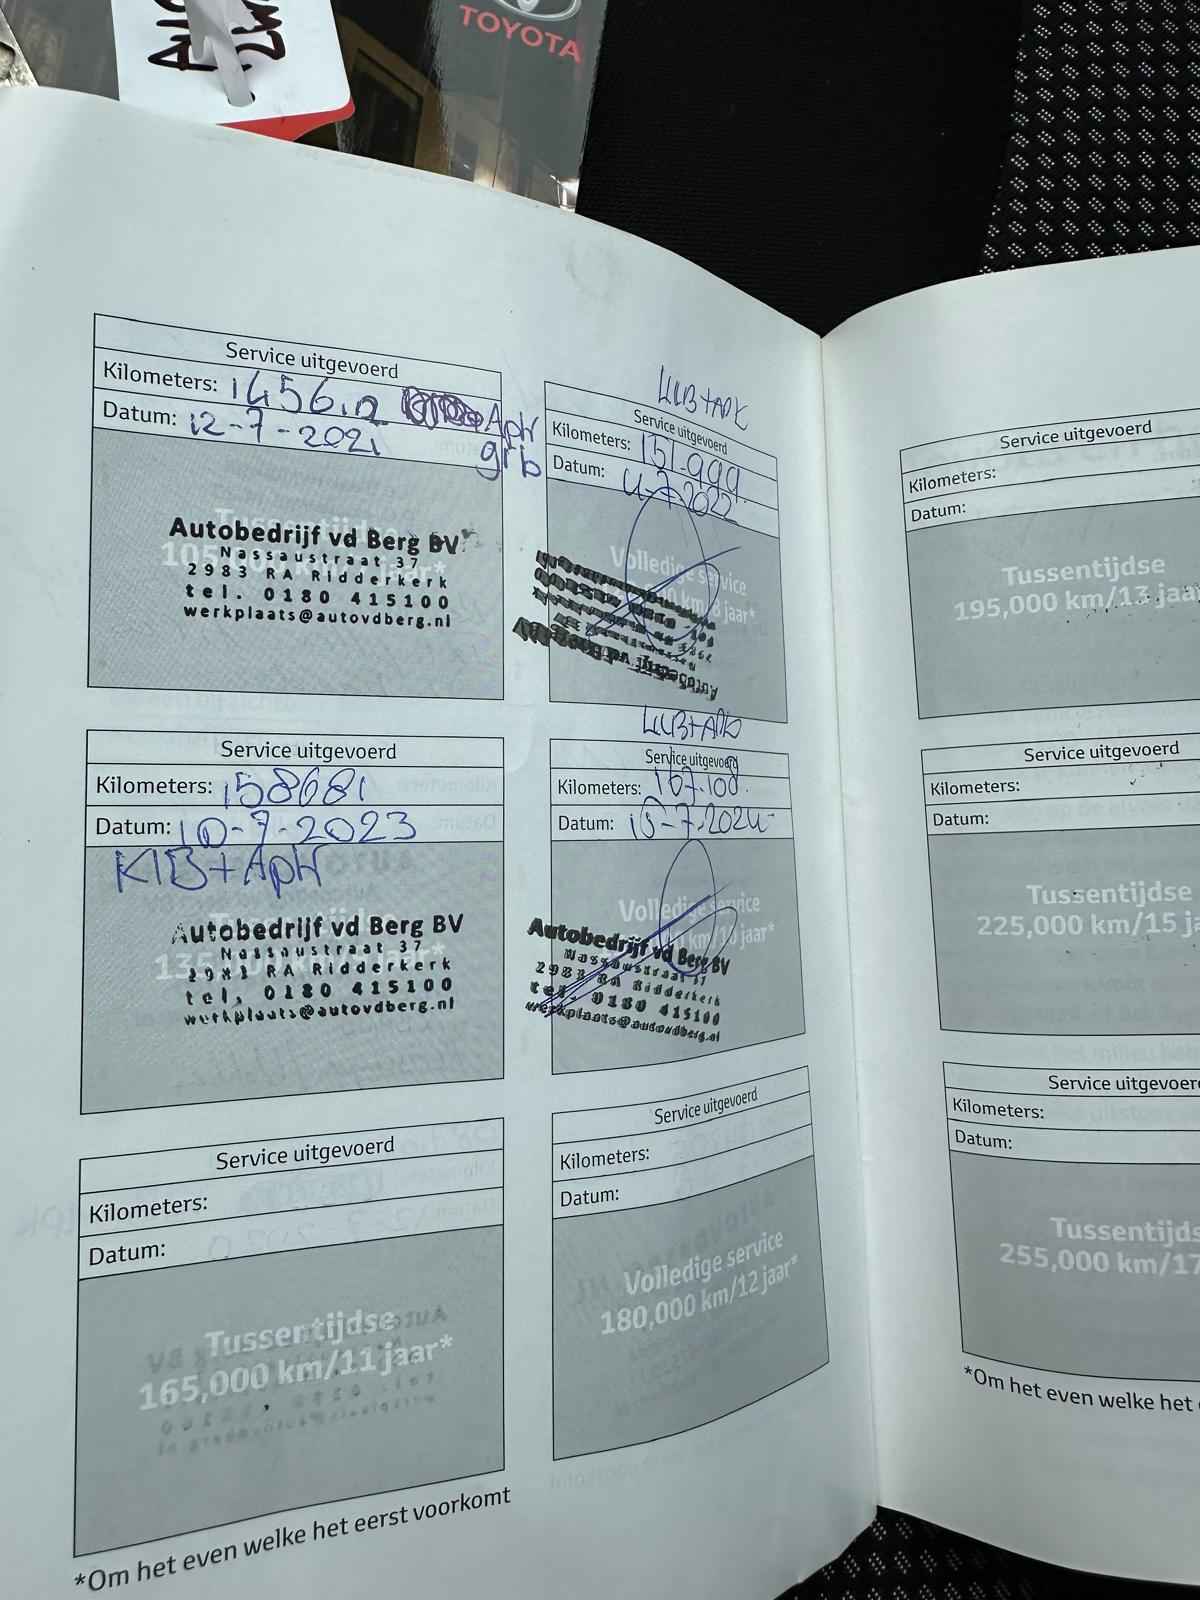 TOYOTA
Service uitgevoerd
Kilometers: 145612 Apk
Datum: 12-7-2021 grb
Autobedrijf vd Berg BV
Nassaustraat 37
2983 RA Ridderkerk
tel. 0180 415100
werkplaats@autovdberg.nl
Service uitgevoerd
Kilometers: 151.999
Datum: 4-7-2022
Volledige service
Autobedrijf vd Berg BV
Service uitgevoerd
Kilometers: 158681
Datum: 10-7-2023
KlB+Apk
Autobedrijf vd Berg BV
Nassaustraat 37
2983 RA Ridderkerk
tel. 0180 415100
werkplaats@autovdberg.nl
Service uitgevoerd
Kilometers: 167.108.
Datum: 16-7-2024
Volledige service
Autobedrijf vd Berg BV
Nassaustraat 37
2983 RA Ridderkerk
tel. 0180 415100
werkplaats@autovdberg.nl
Service uitgevoerd
Kilometers:
Datum:
Tussentijdse
165,000 km/11 jaar*
Service uitgevoerd
Kilometers:
Datum:
Volledige service
180,000 km/12 jaar*
*Om het even welke het eerst voorkomt
Service uitgevoerd
Kilometers:
Datum:
Tussentijdse
195,000 km/13 jaar
Service uitgevoerd
Kilometers:
Datum:
Tussentijdse
225,000 km/15 j
Service uitgevoerd
Kilometers:
Datum:
Tussentijds
255,000 km/17
*Om het even welke het